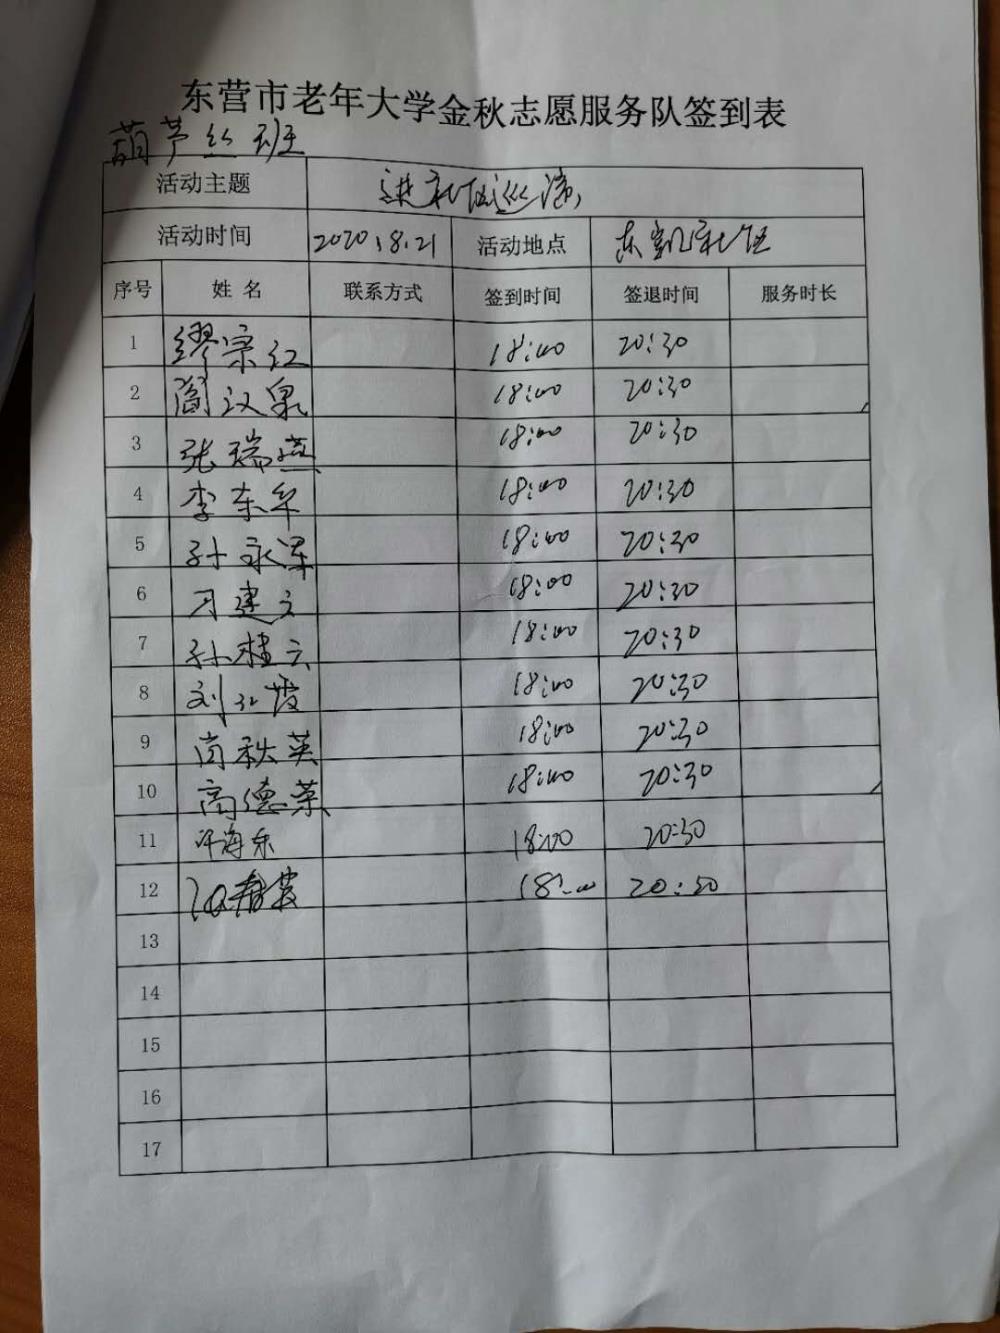 东营市老年大学金秋志愿服务队签到表
葫芦丝班
活动主题 进社区巡演
活动时间 2020.8.21 活动地点 东凯社区
序号 姓名 联系方式 签到时间 签退时间 服务时长
1 缪宗红 18:00 20:30
2 阎汉泉 18:00 20:30
3 张瑞燕 18:00 20:30
4 李东平 18:00 20:30
5 孙永军 18:00 20:30
6 建立 18:00 20:30
7 孙桂云 18:00 20:30
8 刘红霞 18:00 20:30
9 尚秋英 18:00 20:30
10 高德荣 18:00 20:30
11 海东 18:00 20:30
12 18:00 20:30
13
14
15
16
17